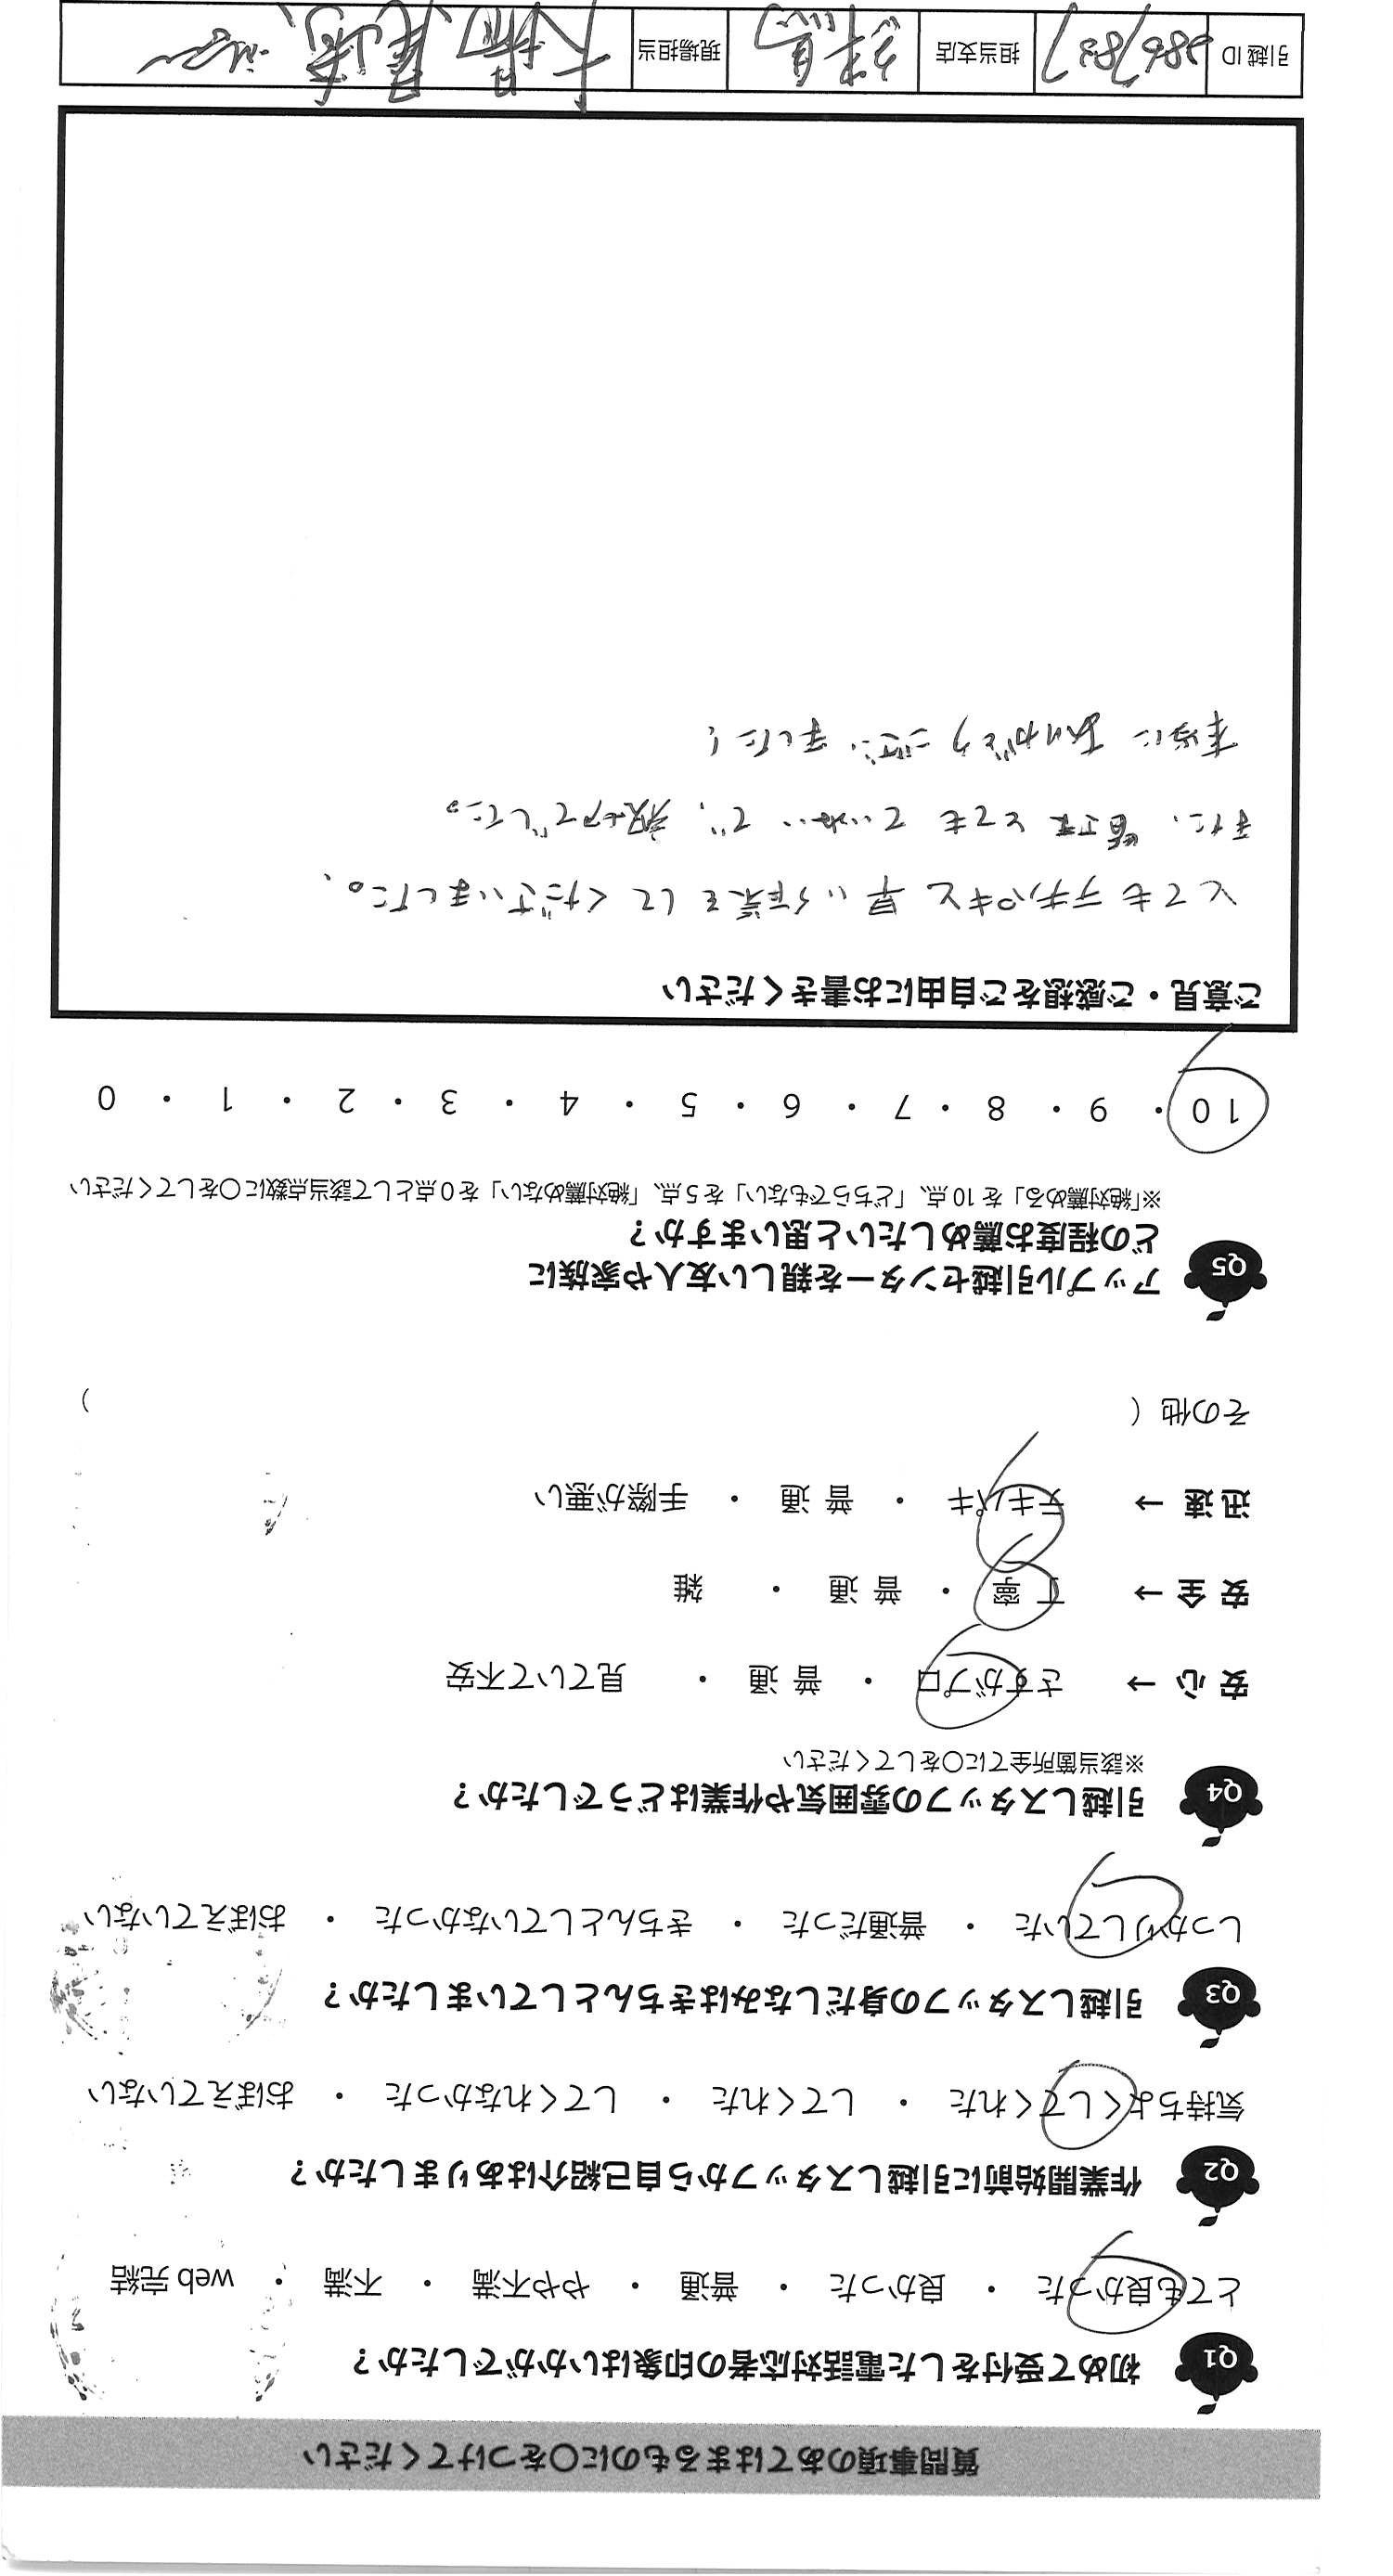 質問事項のあてはまるものに〇をつけてください
Q1 初めて受付をした電話対応者の印象はいかがでしたか？
とても良かった ・ 良かった ・ 普通 ・ やや不満 ・ 不満 ・ web 完結
Q2 作業開始前に引越しスタッフから自己紹介はありましたか？
気持ちよくしてくれた ・ してくれた ・ してくれなかった ・ おぼえていない
Q3 引越しスタッフの身だしなみはきちんとしていましたか？
しっかりしていた ・ 普通だった ・ きちんとしていなかった ・ おぼえていない
Q4 引越しスタッフの雰囲気や作業はどうでしたか？
※該当箇所全てに〇をしてください
安心 → さすがプロ ・ 普通 ・ 見ていて不安
安全 → 丁寧 ・ 普通 ・ 雑
迅速 → テキパキ ・ 普通 ・ 手際が悪い
その他（ ）
Q5 アップル引越センターを親しい友人や家族に
どの程度お薦めしたいと思いますか？
※「絶対薦める」を10点、「どちらでもない」を5点、「絶対薦めない」を0点として該当点数に〇をしてください
10 ・ 9 ・ 8 ・ 7 ・ 6 ・ 5 ・ 4 ・ 3 ・ 2 ・ 1 ・ 0
ご意見・ご感想をご自由にお書きください
とてもテキパキと早い作業をしてくださいました。
また、皆さまとてもていねいで、親切でした。
本当にありがとうございました！
引越ID 担当支店 現場担当